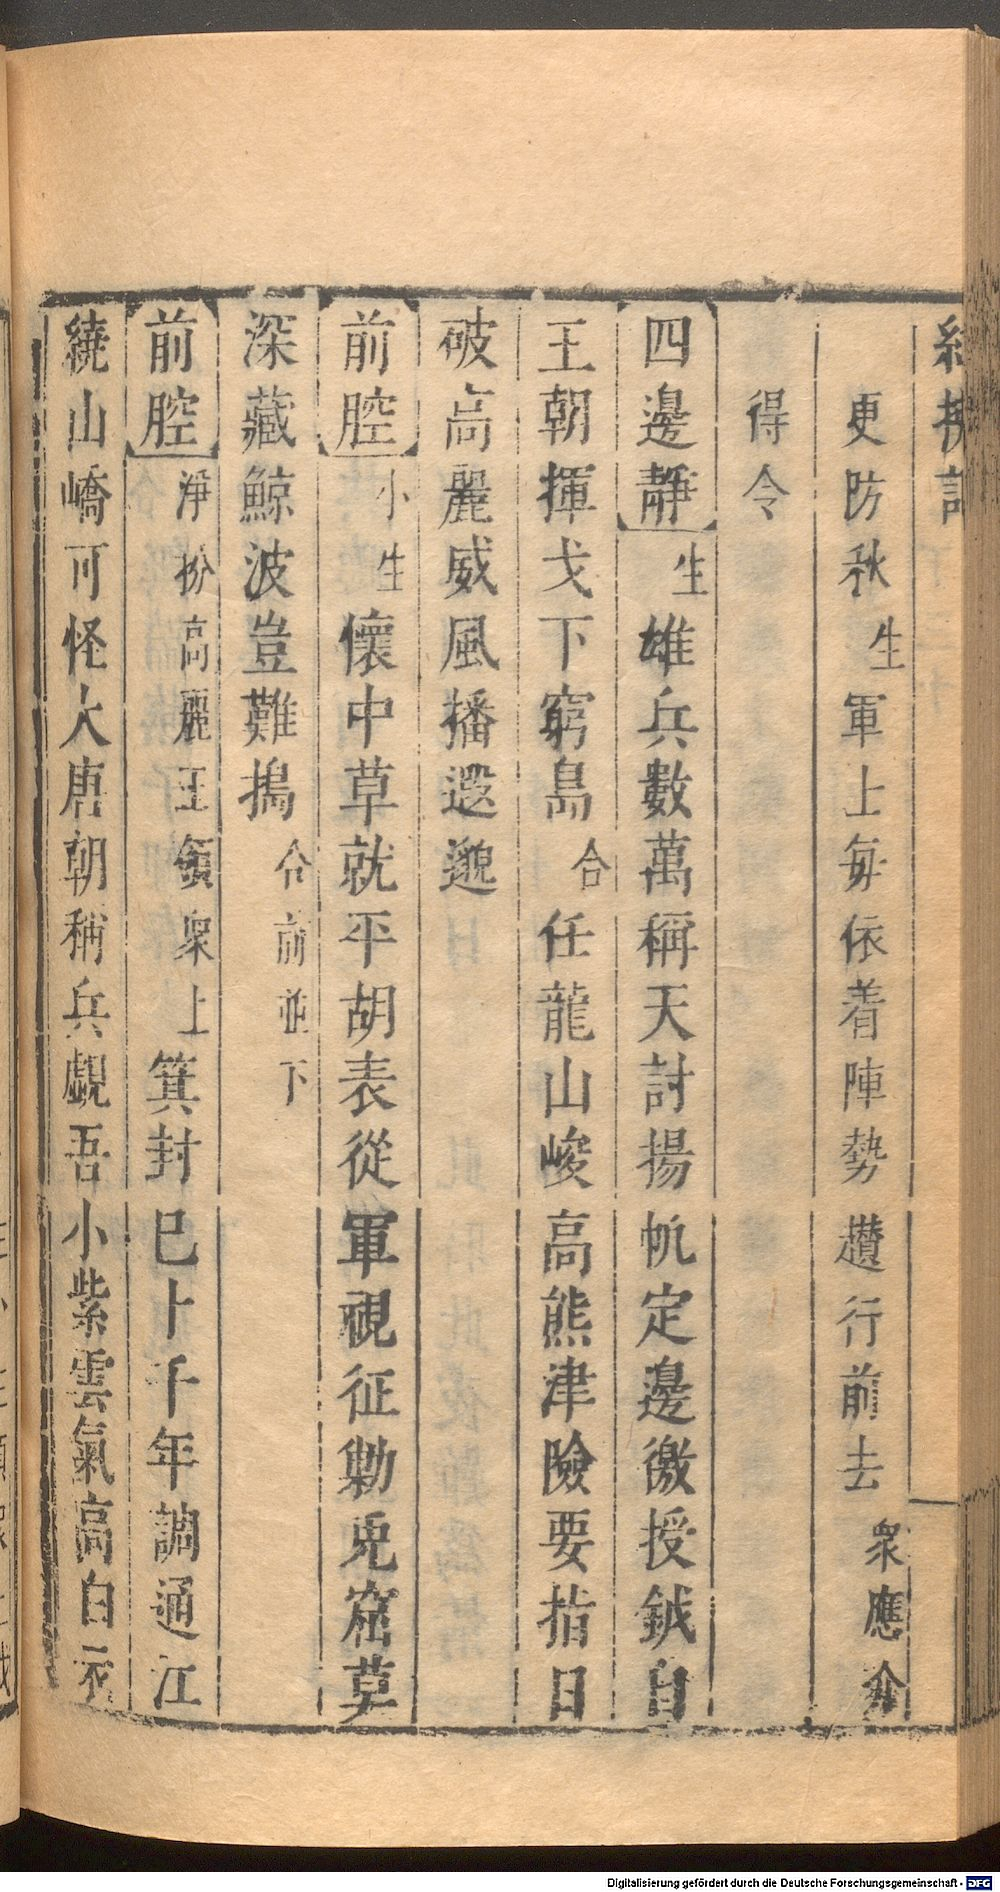 紅拂記
更防秋生軍上每依着陣勢趲行前去衆應介
得令
四邊靜生雄兵數萬稱天討揚帆定邊徼授鉞自
王朝揮戈下窮島合任龍山峻高熊津險要指日
破高麗威風播遐邈
前腔小生懷中草就平胡表從軍視征勦兎窟莫
深藏鯨波豈難搗合前並下
前腔淨扮高麗王領衆上箕封已卜千年調通江
繞山嶠可怪大唐朝稱兵覷吾小紫雲氣高白衣
Digitalisierung gefördert durch die Deutsche Forschungsgemeinschaft - DFG